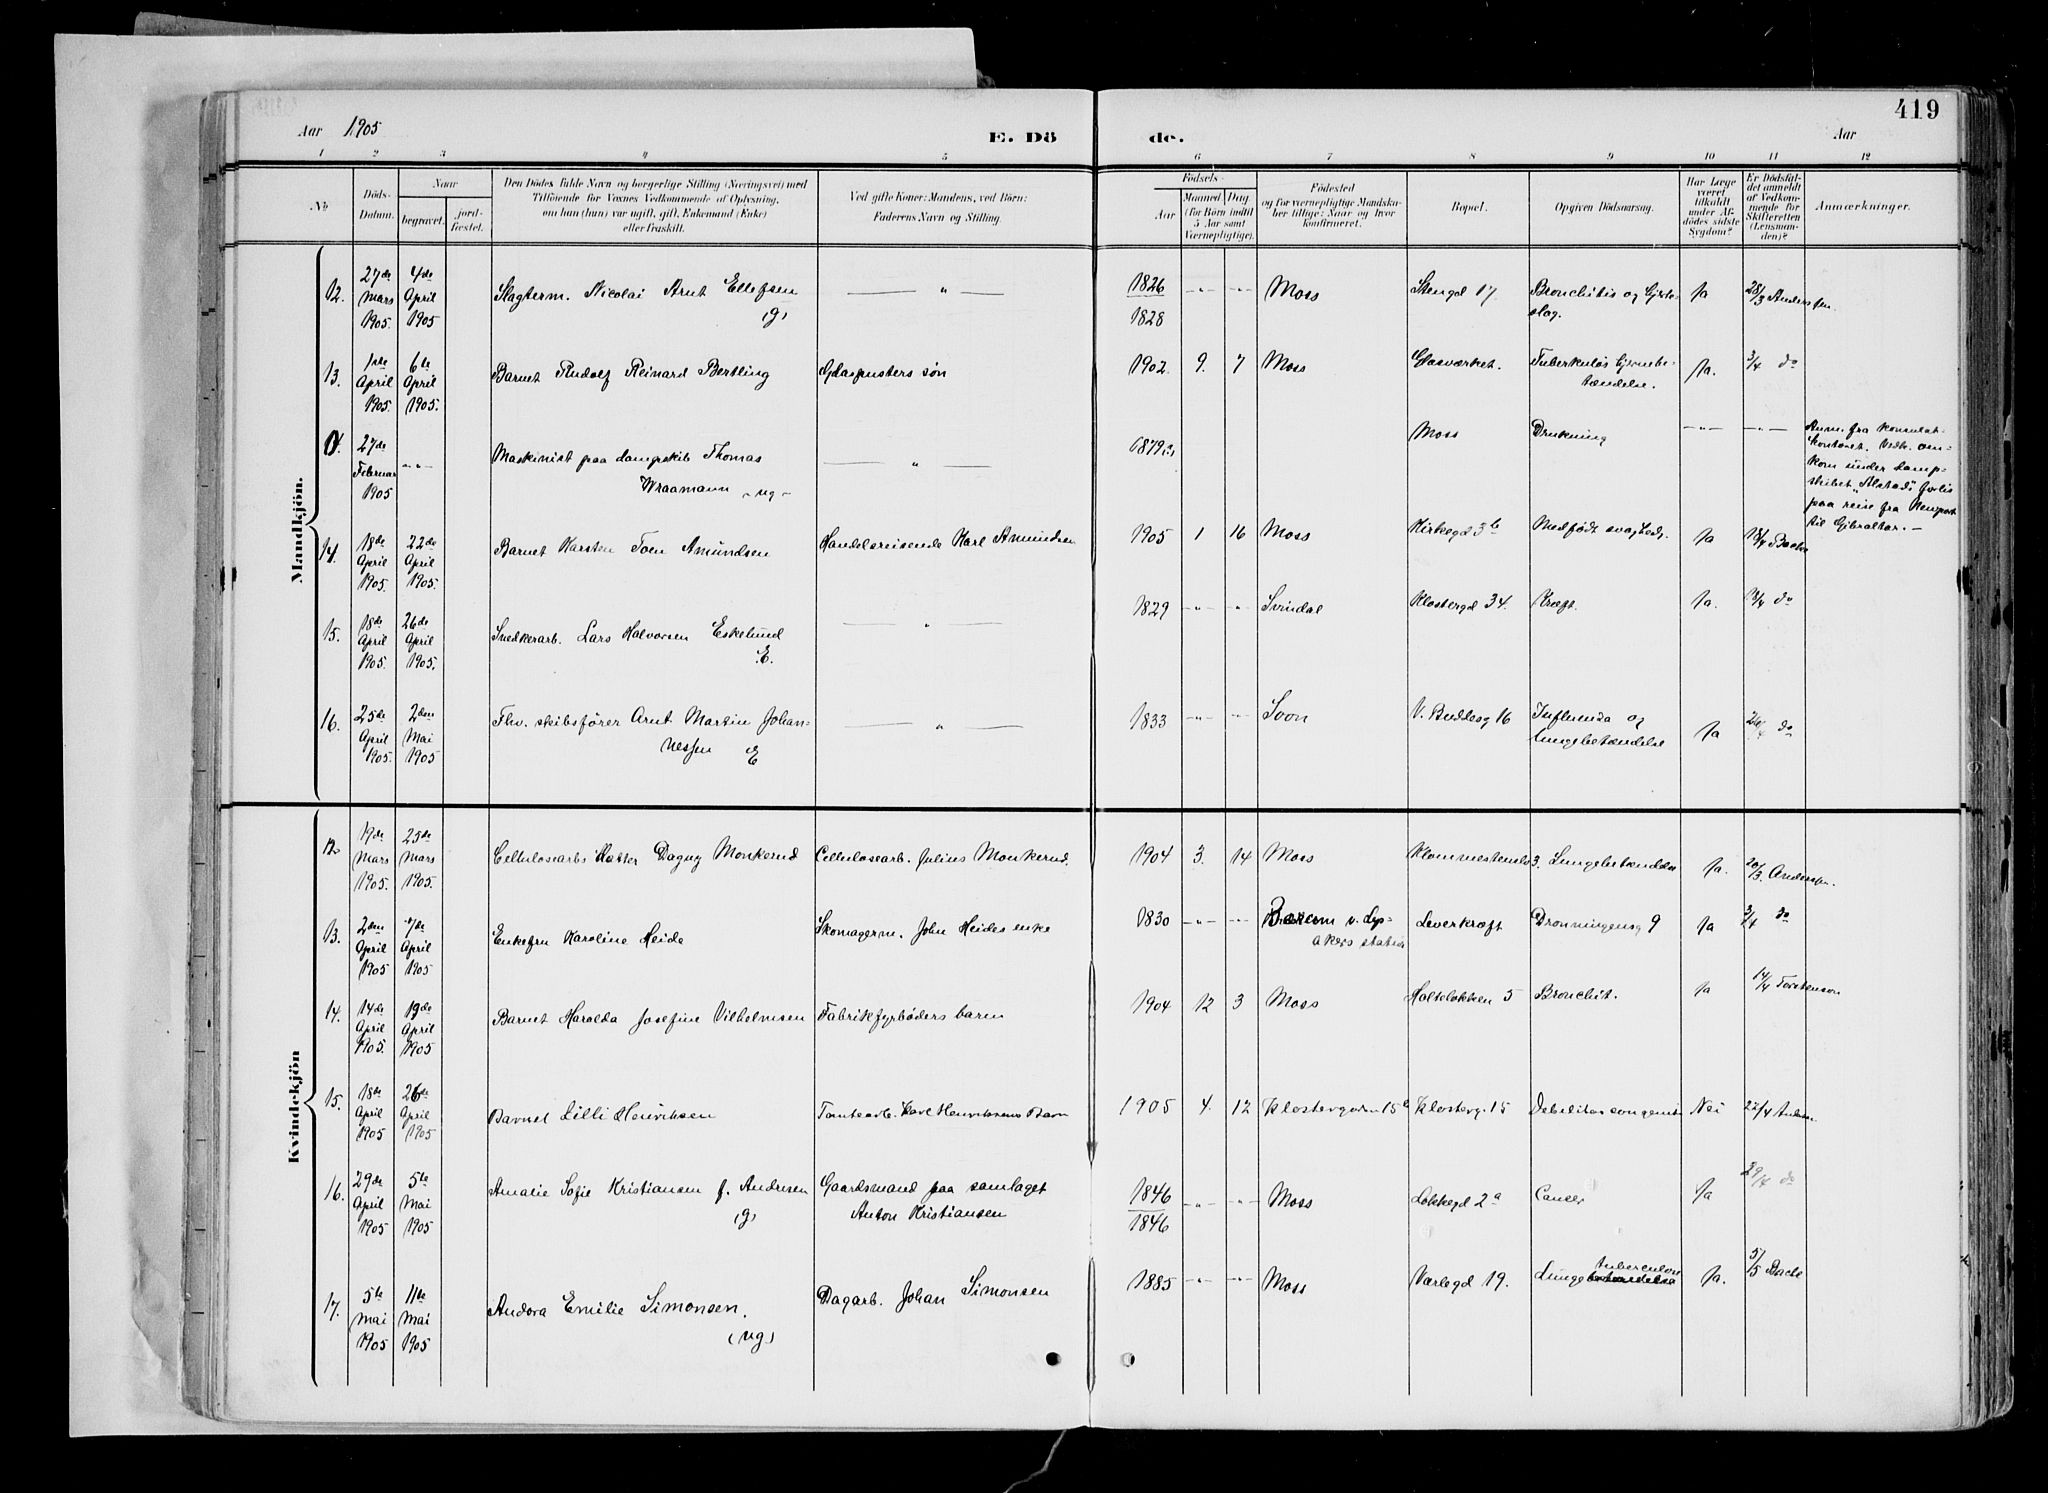 419
Aar 1905 E. Dö de. Aar
1 2 3 4 5 6 7 8 9 10 11 12
No. Döds-Datum. Naar begravet. jord-fæstet. Den Dödes fulde Navn og borgerlige Stilling (Næringsvei) med Tilföiende for Voxnes Vedkommende af Oplysning, om han (hun) var ugift, gift, Enkemand (Enke) eller fraskilt. Ved gifte Koner: Mandens, ved Börn: Faderens Navn og Stilling. Födsels- Aar Maaned Dag (for Börn indtil 5 Aar samt Værnepligtige). Födested og for værnepligtige Mandskaber tillige: Naar og hvor konfirmeret. Bopæl. Opgiven Dödsaarsag. Har Læge været tilkaldt under Afdödes sidste Sygdom? Er Dödsfaldet anmeldt af Vedkommende for Skifteretten (Lensmanden)? Anmærkninger.
Mandkjön.
12. 27de Mars 1905. 4de April 1905 Slagterm. Nicolai Arnt Ellefsen (g) — " — 1826 1828 - " - - " - Moss Stengd 17 Bronchitis og Hjerteslag. Ja 28/3 Anderssen.
13. 1ste April 1905. 6te April 1905. Barnet Rudolf Reinard Bertling Glaspusters søn 1902. 9. 7 Moss Glasværket. Tuberkuløs Hjernebetændelse. Ja. 3/4 do
0. 27de Februar 1905 - " - Maskinist paa dampskib Thomas Wraamann - ug - — " — 1879(?) Moss Drukning - " - - " - Anm. fra Konsulatkontoret. Vedk. omkom under dampskibet "Alstad's" forlis paa reise fra Newport til Gibraltar. -
14. 18de April 1905. 22de April 1905. Barnet Karsten Toen Amundsen Handelsreisende Karl Amundsen 1905 1 16 Moss Kirkegd 3b Medfødt svaghed. Ja 18/4 Bache
15. 18de April 1905. 26de April 1905. Snedkerarb. Lars Halvorsen Eskelund E. — " — 1829 - " - - " - Svindal Klostergd 34. Kræft. Ja. 19/4 do
16. 25de April 1905. 2den Mai 1905 Fhv. skibsfører Arnt Martin Johannessen E — " — 1833 - " - - " - Soon V. Bredesg 16 Influenza og Lungebetændelse Ja 26/4 do
Kvindekjön
12. 19de Mars 1905. 25de Mars 1905. Cellulosearbs Datter Dagny Monkerud Cellulosearb. Julius Monkerud. 1904 3. 14 Moss Klommestensb 3. Lungebetændelse Ja. 20/3. Anderssen.
13. 2den April 1905 7de April 1905 Enkefru Karoline Heide Skomagerm. John Heides enke 1830 - " - - " - Bærum v. Lysakers station Leverkræft Dronningensg 9 Ja 3/4 do
14. 14de April 1905. 19de April 1905 Barnet Haralda Josefine Vilhelmsen Fabrikfyrbøders barn 1904 12 3 Moss Holteløkken 5 Bronchit. Ja 14/4 Torstenson
15. 18de April 1905 26de April 1905 Barnet Lilli Henriksen Tomtearb. Karl Henriksens Barn 1905 4. 12 Klostergaden 15b Klosterg. 15 Debilitas congenita Nei 22/4 Anders.
16. 29de April 1905 5te Mai 1905 Amalie Sofie Kristiansen f. Andresen (g) Gaardsmand paa samlaget Anton Kristiansen 1846 1846 - " - - " - Moss Løkkegd 2a Cancer Ja 29/4 do
17. 5te Mai 1905 11te Mai 1905 Andora Emilie Simonsen. (ug) Dagarb. Johan Simonsen 1885 - " - - " - Moss Værlegd 19. Lunge tuberculose Ja. 5/5 Bache